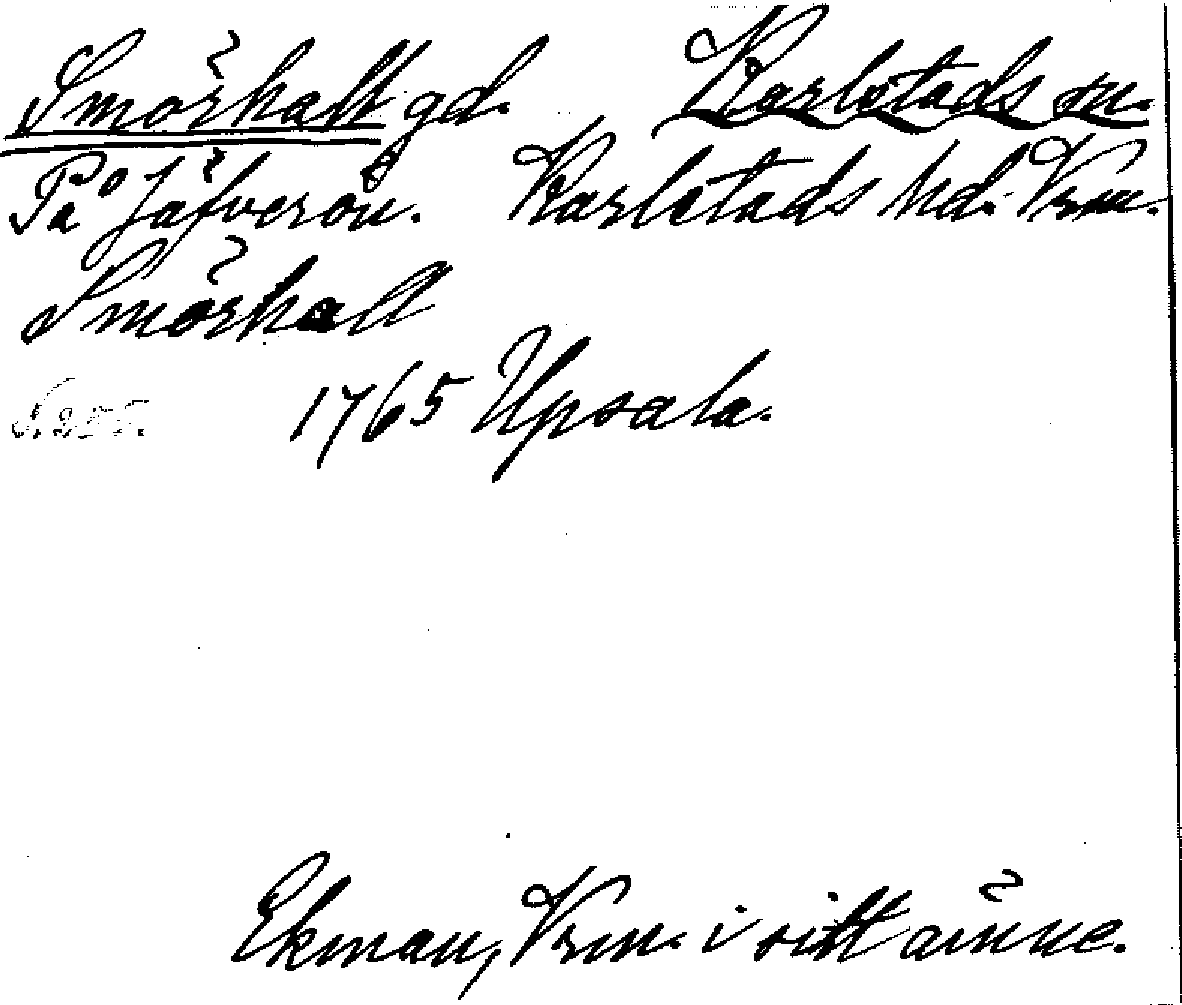 Smörhall gd. Karlstads sn.
På Jäfverön. Karlstads hd. Vrm.
Smörhall
S. 255. 1765 Upsala.
Ekman, Vrm. i sitt ämne.